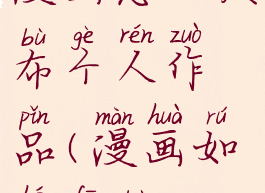 bù gè rén zuò
布个人作
pǐn màn huà rú
品(漫画如